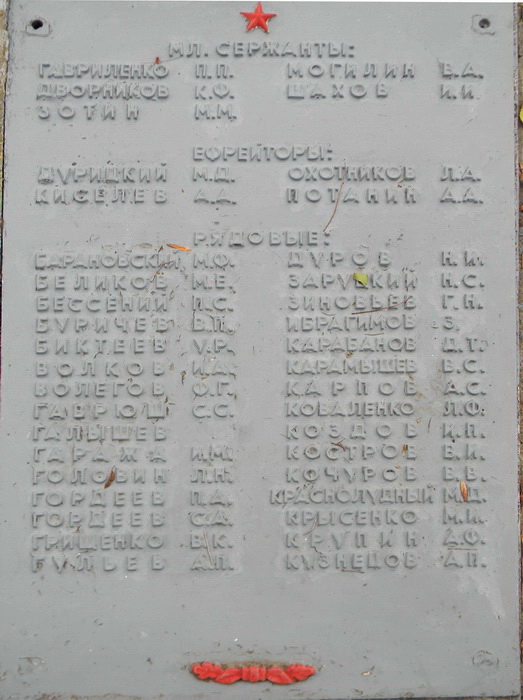 МЛ. СЕРЖАНТЫ:
ГАВРИЛЕНКО П.П. МОГИЛИН В.А.
ДВОРНИКОВ К.Ф. ШАХОВ И.И.
ЗОТИН М.М.
ЕФРЕЙТОРЫ:
ДУРИЦКИЙ М.Д. ОХОТНИКОВ Л.А.
КИСЕЛЕВ А.Д. ПОТАНИН А.А.
РЯДОВЫЕ:
БАРАНОВСКИЙ М.Ф. ДУРОВ Н.И.
БЕЛИКОВ М.Е. ЗАРУЦКИЙ Н.С.
БЕССЕНИЙ П.С. ЗИНОВЬЕВ Г.Н.
БУРИЧЕВ В.П. ИБРАГИМОВ З.
БИКТЕЕВ У.Р. КАРАБАНОВ Д.Т.
ВОЛКОВ И.А. КАРАМЫШЕВ В.С.
ВОЛЕГОВ Ф.Г. КАРПОВ А.С.
ГАВРЮШ С.С. КОВАЛЕНКО Л.Ф.
ГАЛЫШЕВ КОЗДОВ И.П.
ГАРАЖА И.М. КОСТРОВ В.И.
ГОЛОВИН Л.Н. КОЧУРОВ В.В.
ГОРДЕЕВ П.А. КРАСНОЛУДНЫЙ М.Д.
ГОРДЕЕВ С.А. КРЫСЕНКО М.И.
ГРИШЕНКО В.К. КРУПИН Д.Ф.
ГУЛЬЕВ А.П. КУЗНЕЦОВ А.П.